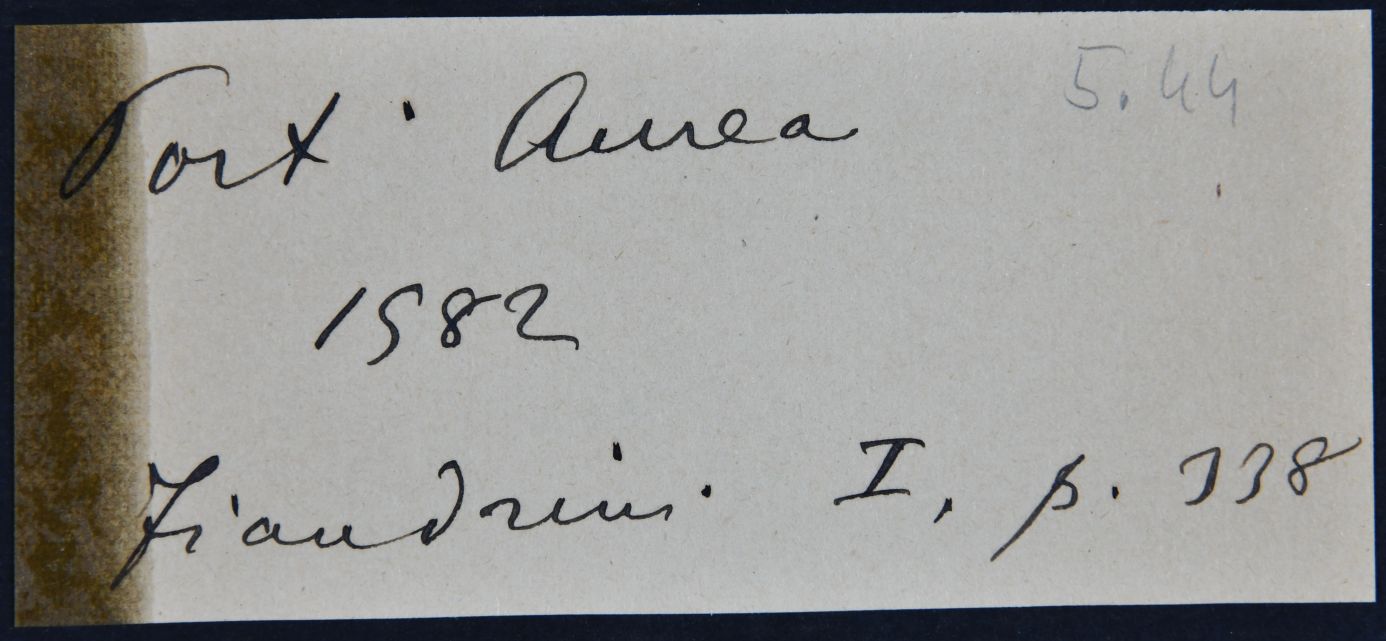 Port' Aurea 5.44
1582
Fiandrini I, p. 338